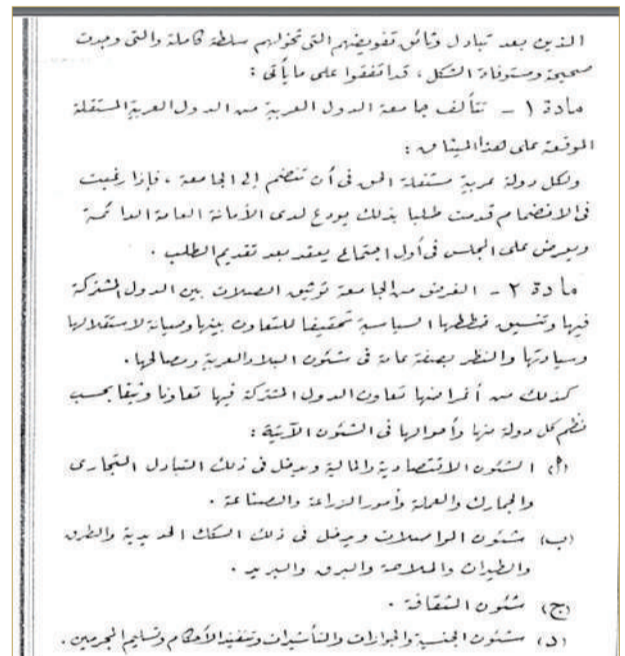 الذين بعد تبادل وثائق تفويضهم التى تخولهم سلطة كاملة والتى وجدت
صحيحة ومستوفاة الشكل ، قد اتفقوا على ما يأتى :
مادة ١ - تتألف جامعة الدول العربية من الدول العربية المستقلة
الموقعة على هذا الميثاق :
ولكل دولة عربية مستقلة الحق فى أن تنضم إلى الجامعة ، فإذا رغبت
فى الانضمام قدمت طلبا بذلك يودع لدى الأمانة العامة الدائمة
ويعرض على المجلس فى أول اجتماع يعقد بعد تقديم الطلب .
مادة ٢ - الغرض من الجامعة توثيق الصلات بين الدول المشتركة
فيها وتنسيق خططها السياسية تحقيقا للتعاون بينها وصيانة لاستقلالها
وسيادتها والنظر بصفة عامة فى شئون البلاد العربية ومصالحها .
كذلك من أغراضها تعاون الدول المشتركة فيها تعاونا وثيقا بحسب
نظم كل دولة منها وأحوالها فى الشئون الآتية :
(أ) الشئون الاقتصادية والمالية ويدخل فى ذلك التبادل التجارى
والجمارك والعملة وأمور الزراعة والصناعة .
(ب) شئون المواصلات ويدخل فى ذلك السكك الحديدية والطرق
والطيران والملاحة والبرق والبريد .
(ج) شئون الثقافة .
(د) شئون الجنسية والجوازات والتأشيرات وتنفيذ الأحكام وتسليم المجرمين .